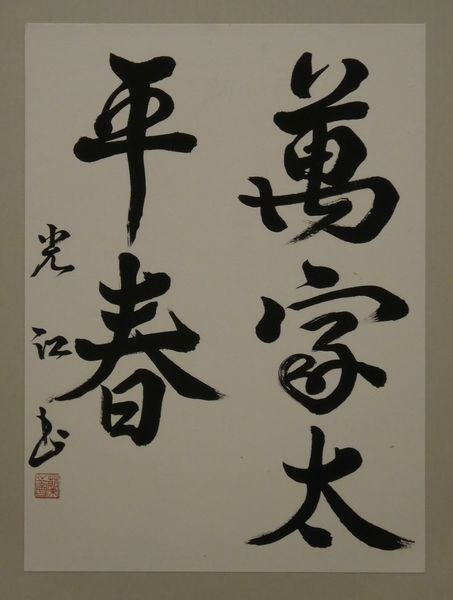 萬家太
平春
光江書